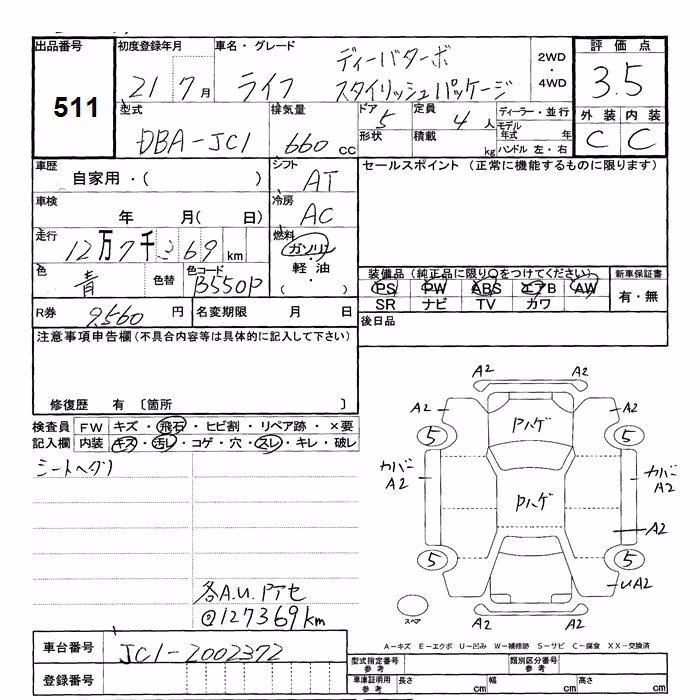 出品番号 初度登録年月 車名・グレード 評価点
511 21 7月 ライフ ディーバターボ 2WD・4WD 3.5
スタイリッシュパッケージ
型式 排気量 ドア 定員 ディーラー・並行 外装 内装
DBA-JC1 660 cc 5 4人 モデル年式 年 C C
形状 積載 kg ハンドル 左・右
車歴 シフト セールスポイント (正常に機能するものに限ります)
自家用・( ) AT
車検 冷房
年 月( 日) AC
走行 燃料
12万7千369km ガソリン・軽油
色 色替 色コード 装備品 (純正品に限り○をつけてください) 新車保証書
青 B550P PS PW ABS エアB AW 有・無
SR ナビ TV カワ
R券 9,560円 名変期限 月 日 後日品
注意事項申告欄 (不具合内容等は具体的に記入して下さい)
修復歴 有 〔箇所 〕
検査員 FW キズ・飛石・ヒビ割・リペア跡・×要
記入欄 内装 キズ・汚レ・コゲ・穴・スレ・キレ・破レ
シートヘタリ
各A.U.Pアセ
127369km
A2 A2
A2 Pハゲ A2
5 5
カバーA2 カバーA2
Pハゲ
A2
5 5
UA2
A2 A2
スペア
A-キズ E-エクボ U-凹み W-補修跡 S-サビ C-腐食 XX-交換済
車台番号 JC1-2002372 型式指定番号 参考 類別区分番号 参考
登録番号 車庫証明用 参考 長さ cm 幅 cm 高さ cm